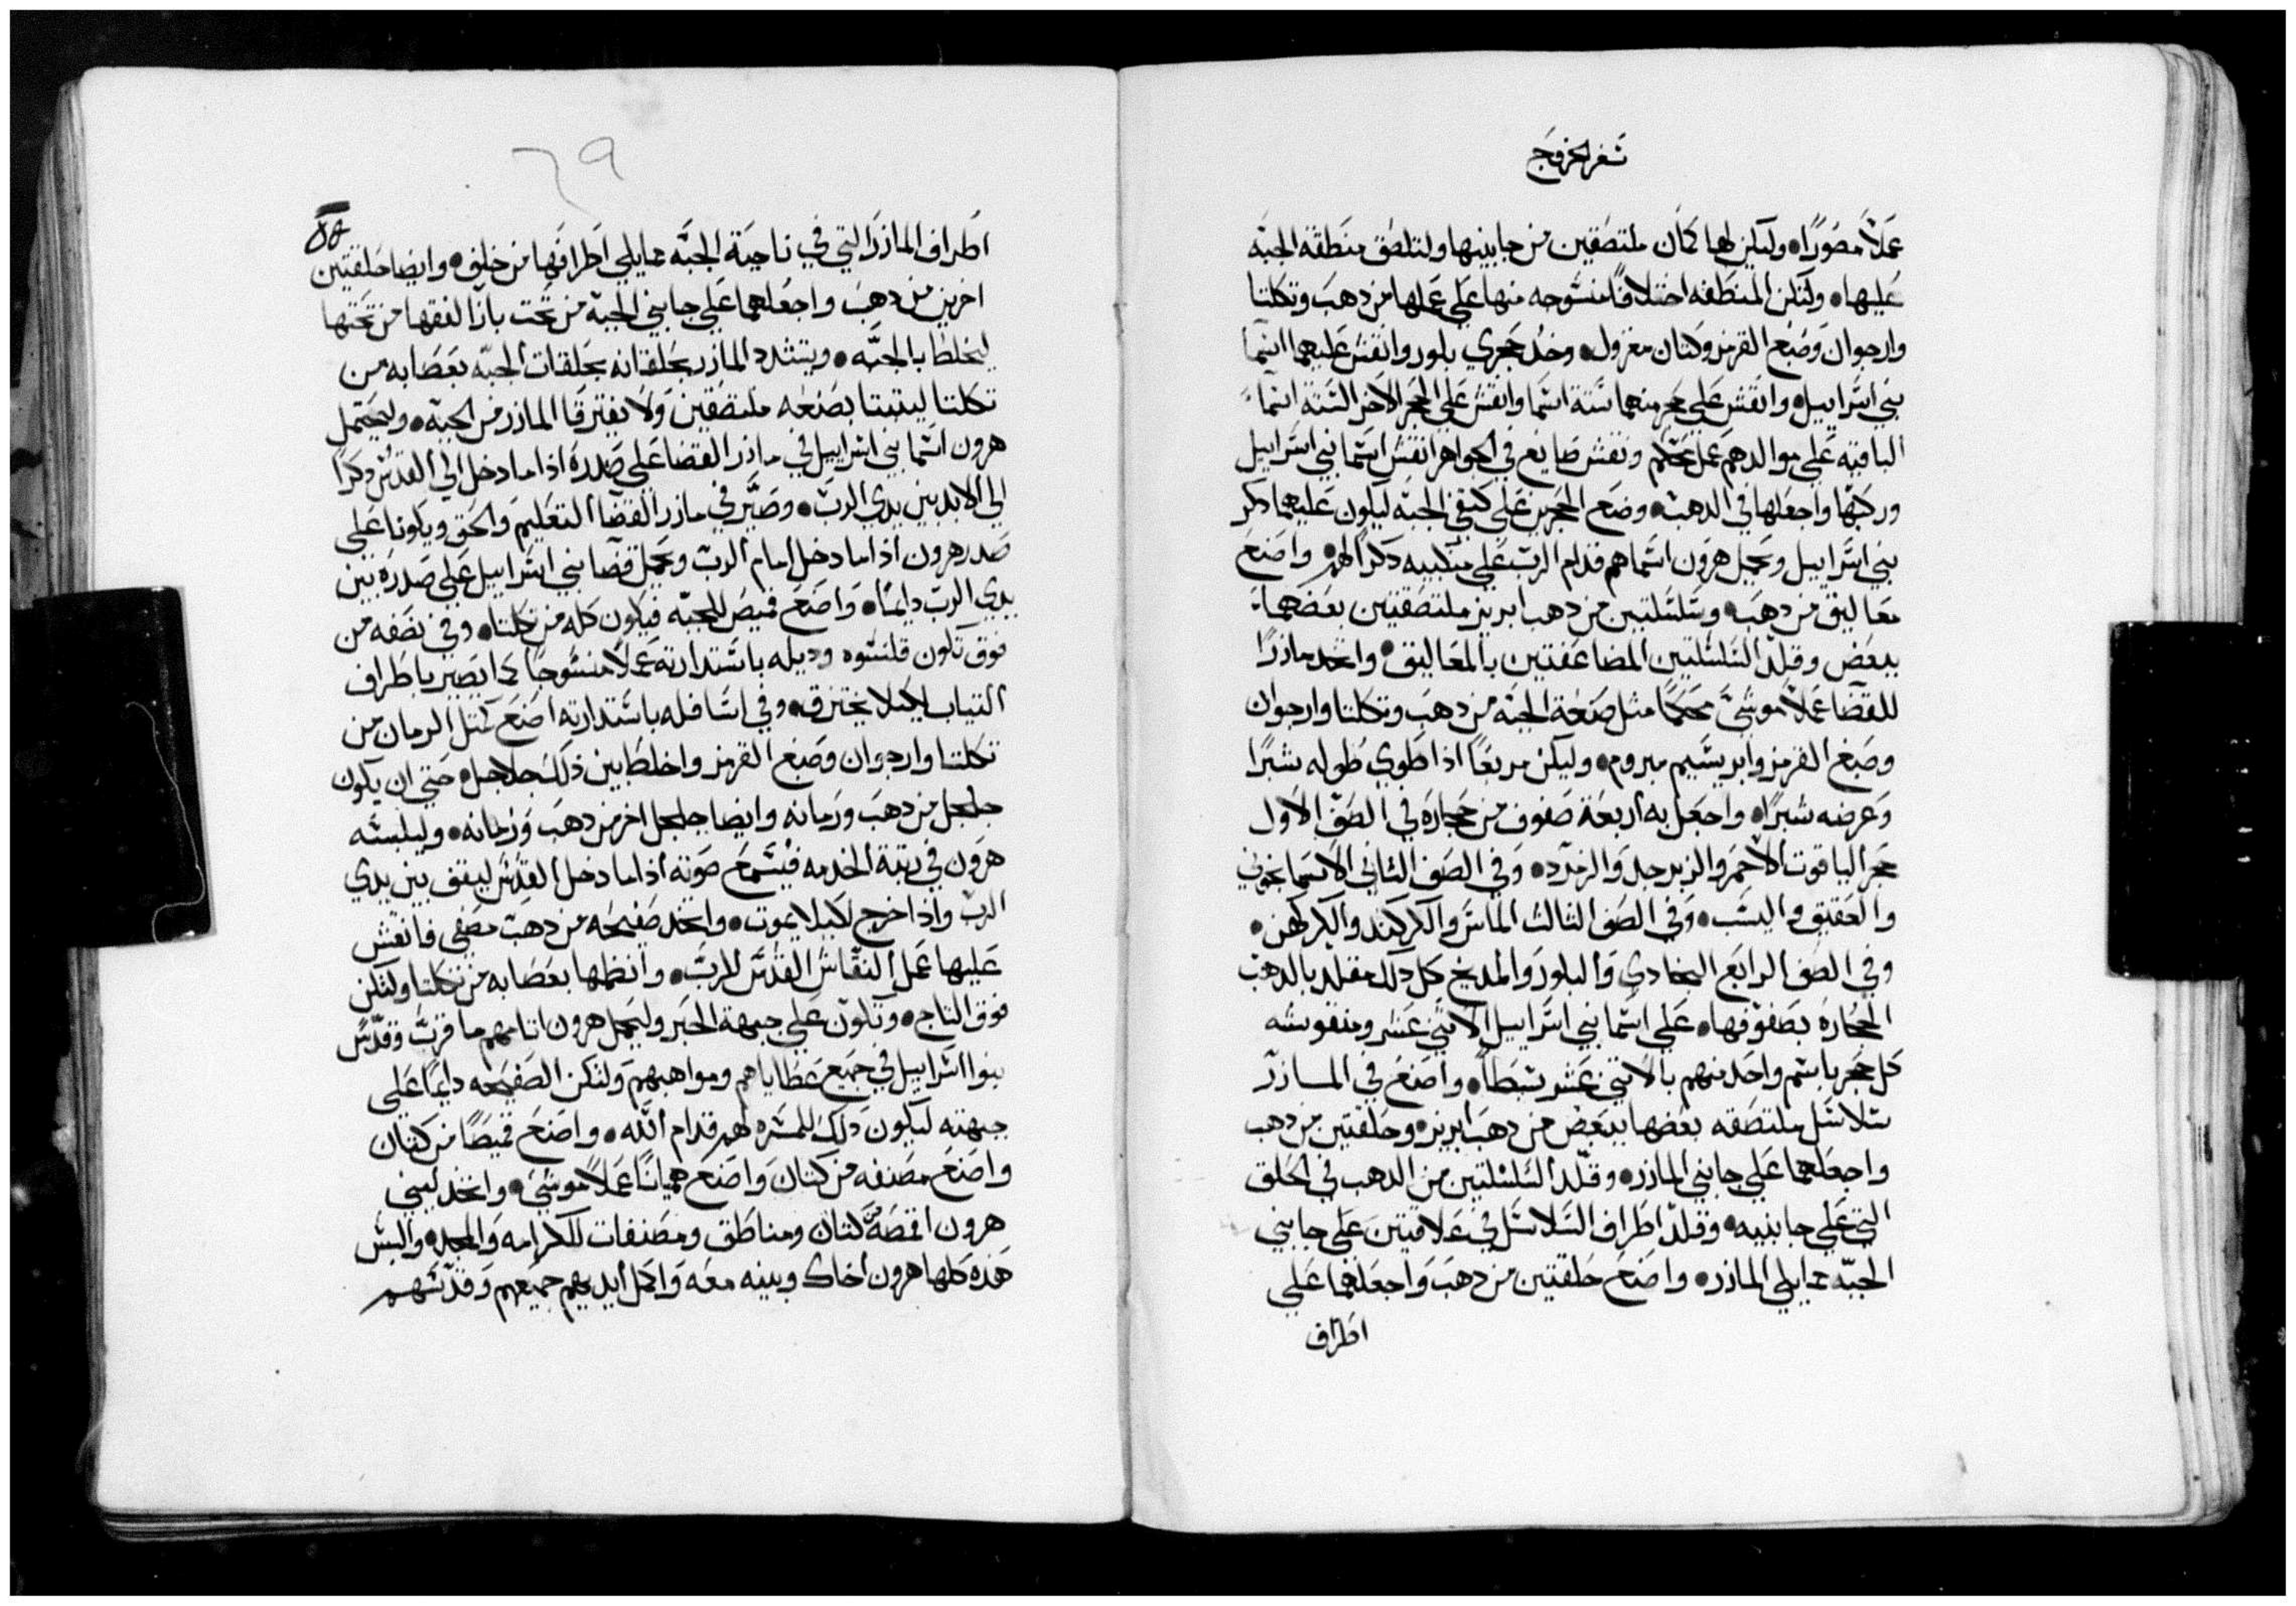 سفر الخروج
عملاً مصوراً وليكن لها كمان ملتصقين من جابنيها ولتلصق منطقة الجبه
عليها ولتكن المنطقه اختلافاً منسوجه منها على عملها من دهب وتكلتا
وارجوان وصبغ القرمز وكتان مغزول وخد حجري بلور وانقش عليهما اسما
بني اسراييل وانقش على حجر منهما ستة اسما وانقش على الحجر الاخر الستة اسماً
الباقيه على موالدهم عمل محكم ونقش صايغ في الجواهر انقش اسما بني اسراييل
وركبها واجعلها في الدهب وضع الحجرين على كتفي الجبه ليكون عليهما دكر
بني اسراييل ويحمل هرون اسماهم قدام الرب على منكبيه دكراً لهم واصنع
معاليق من دهب وسلسلتين من دهب ابريز ملتصقتين بعضهما
ببعض وقلد السلسلتين المضاعفتين بالمعاليق واتخد مازراً
للقضا عملاً موشىً محكماً مثل صنعة الجبه من دهب وتكلتا وارجوان
وصبغ القرمز وابريسيم مبروم وليكن مربعاً اذا طوي طوله شبراً
وعرضه شبراً واجعل به اربعة صفوف من حجاره في الصف الاول
حجر الياقوت الاحمر والزبرجد والزمرد وفي الصف الثاني الاسمانجوني
والعقيق واليشب وفي الصف الثالث الماس والكركند والكركهن
وفي الصف الرابع البجادي والبلور والمدبج كل دلك مقلد بالدهب
الحجاره بصفوفها على اسما بني اسراييل الاثنى عشر ومنقوشه
كل حجر باسم واحد منهم بالاثنى عشر سبطاً واصنع في المازر
سلاسل ملتصقه بعضها ببعض من دهب ابريز وحلقتين من دهب
واجعلهما على جابني المازر وقلد السلسلتين من الدهب في الحلق
التي على جابنيه وقلد اطراف السلاسل في علاقتين على جابني
الجبه مما يلي المازر واصنع حلقتين من دهب واجعلهما على
اطراف
٢٩
٥٨
اطراف المازر التي في ناحية الجبه مما يلي اطرافها من خلف وايضا حلقتين
اخرين من دهب واجعلهما على جابني الجبه من تحت بازا لفقها من تحتها
ليخلط بالجبه ويتشدد المازر بحلقاته بحلقات الجبه بعصابه من
تكلتا ليثبتا بصنعه ملتصقين ولا يفترقا المازر من الجبه وليحتمل
هرون اسما بني اسراييل في مازر القضا على صدره اذا ما دخل الى القدس دكراً
الى الابد بين يدي الرب وصير في مازر القضا التعليم والحق ويكونا على
صدر هرون اذا ما دخل امام الرب ويحمل قضا بني اسراييل على صدره بين
يدي الرب دايماً واصنع قميص للجبه فيكون كله من تكلتا وفي نصفه من
فوق تكون قلنسوه وديله باستدارته عملاً منسوجاً كما يصير باطراف
التياب لكيلا يختزق وفي اسافله باستدارته اصنع كمثل الرمان من
تكلتا وارجوان وصبغ القرمز واخلط بين ذلك جلاجل حتى ان يكون
جلجل من دهب ورمانه وايضا جلجل اخر من دهب ورمانه وليلبسه
هرون في رتبة الخدمه فيسمع صوته اذا ما دخل القدس ليقف بين يدي
الرب واذا خرج لكيلا يموت واتخد صفيحه من دهب مصفى فانقش
عليها عمل النقاش القدس للرب وانظمها بعصابه من تكلتا ولتكن
فوق التاج وتكون على جبهة الحبر وليحمل هرون اتامهم ما قرب وقدس
بنوا اسراييل في جميع عطاياهم ومواهبهم ولتكن الصفيحه دايماً على
جبهته ليكون دلك للمسره لهم قدام الله واصنع قميصاً من كتان
واصنع مصنفه من كتان واصنع هميانا عملاً موشى واتخد لبني
هرون اقمصة كتان ومناطق ومصنفات للكرامه والمجد والبس
هذه كلها هرون اخاك وبنيه معه واكمل ايديهم جميعهم وقدسهم